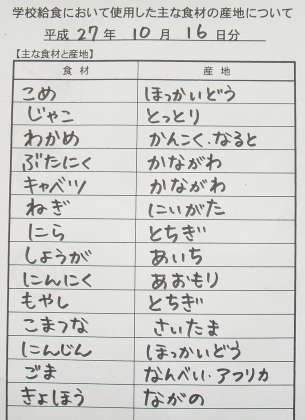 学校給食において使用した主な食材の産地について
平成 27 年 10 月 16 日分
【主な食材と産地】
食材 産地
こめ ほっかいどう
じゃこ とっとり
わかめ かんこく.なると
ぶたにく かながわ
キャベツ かながわ
ねぎ にいがた
にら とちぎ
しょうが あいち
にんにく あおもり
もやし とちぎ
こまつな さいたま
にんじん ほっかいどう
ごま なんべい・アフリカ
きょほう ながの